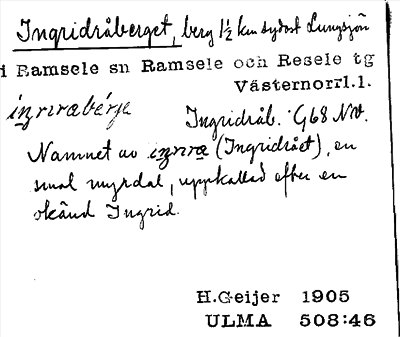 Ingridråberget, berg 1½ km sydost Lungsjön
i Ramsele sn Ramsele och Resele tg
Västernorrl.l.
Ingridråb. G68 NV.
Namnet av (Ingridrået), en
smal myrdal, uppkallad efter en
okänd Ingrid.
H.Geijer 1905
ULMA 508:46